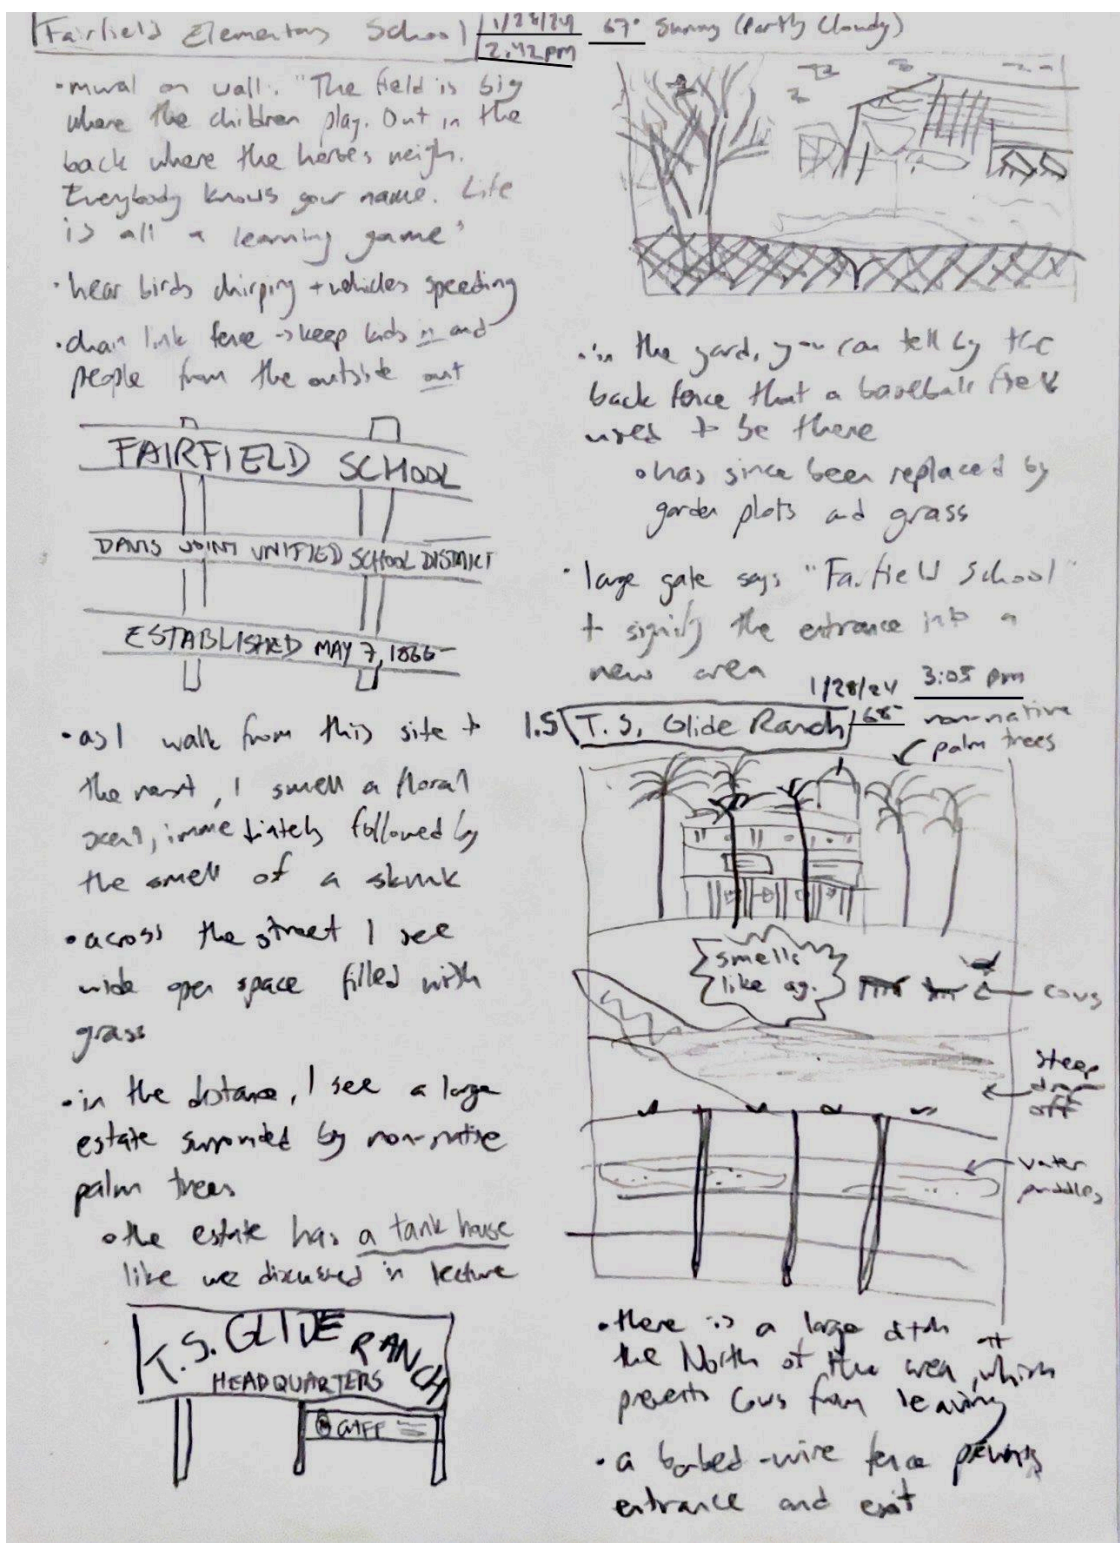 Fairfield Elementary School
1/28/24
2:42pm
67° Sunny (Partly Cloudy)
• mural on wall: "The field is big
where the children play. Out in the
back where the horses neigh.
Everybody knows your name. Life
is all a learning game"
• hear birds chirping + vehicles speeding
• chain link fence → keep kids in and
people from the outside out
FAIRFIELD SCHOOL
DAVIS JOINT UNIFIED SCHOOL DISTRICT
ESTABLISHED MAY 7, 1866
• as I walk from this site to
the next, I smell a floral
scent, immediately followed by
the smell of a skunk
• across the street I see
wide open space filled with
grass
• in the distance, I see a large
estate surrounded by non-native
palm trees
• the estate has a tank house
like we discussed in lecture
T.S. GLIDE RANCH
HEADQUARTERS
• in the yard, you can tell by the
back fence that a baseball field
used to be there
• has since been replaced by
garden plots and grass
• large gate says "Fairfield School"
to signify the entrance into a
new area
1/28/24 3:05 pm
1.5 T. S. Glide Ranch 68°
non-native
palm trees
smells
like ag.
cows
steep
drop
off
water
puddles
• there is a large ditch at
the North of the area, which
prevents cows from leaving
• a barbed-wire fence prevents
entrance and exit